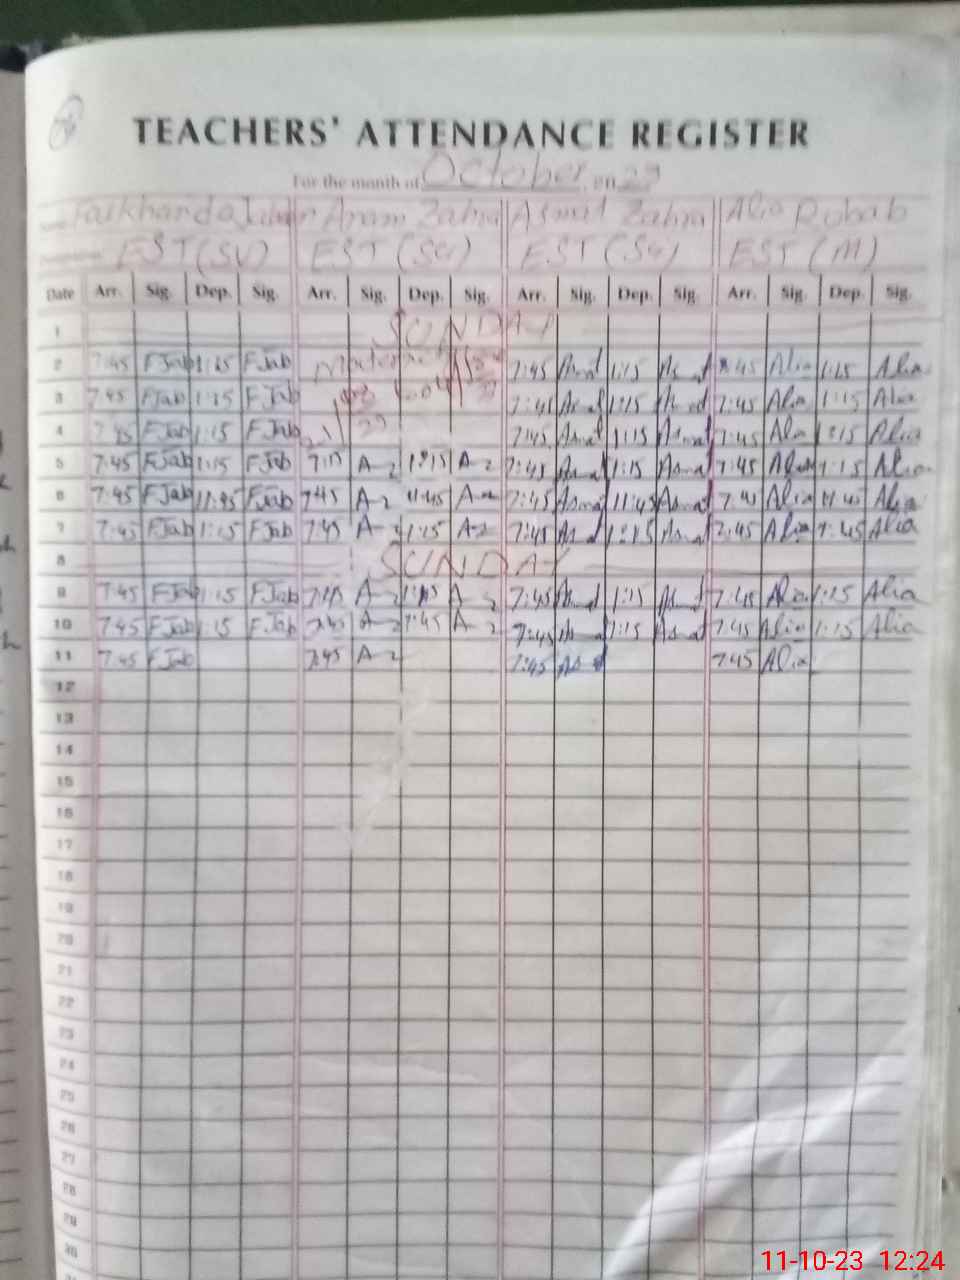 TEACHERS' ATTENDANCE REGISTER
For the month of October 23
Aram Zahra Asmat Zahra Alia Rubab
EST (SV) EST (SV) EST (SV) EST (M)
Date Arr. Sig. Dep. Sig. Arr. Sig. Dep. Sig. Arr. Sig. Dep. Sig. Arr. Sig. Dep. Sig.
1 SUNDAY
2 7:45 F Jab 1:15 F Jab 7:45 Asmat 1:15 Asmat 7:45 Alia 1:15 Alia
3 7:45 F Jab 1:15 F Jab 7:45 Asmat 1:15 Asmat 7:45 Alia 1:15 Alia
4 7:45 F Jab 1:15 F Jab 7:45 Asmat 1:15 Asmat 7:45 Alia 1:15 Alia
5 7:45 F Jab 1:15 F Jab A-2 1:15 A-2 7:45 Asmat 1:15 Asmat 7:45 Alia 1:15 Alia
6 7:45 F Jab 11:45 F Jab 7:45 A-2 11:45 A-2 7:45 Asmat 11:45 Asmat Alia 11:45 Alia
7 7:45 F Jab 1:15 F Jab 7:45 A-2 1:15 A-2 7:45 Asmat 1:15 Asmat 7:45 Alia Alia
8 SUNDAY
9 7:45 F Jab 1:15 F Jab A-2 A-2 7:45 Asmat 1:15 Asmat 7:45 Alia 1:15 Alia
10 7:45 F Jab 1:15 F Jab 7:45 A-2 7:45 A-2 7:45 Asmat 1:15 Asmat 7:45 Alia 1:15 Alia
11 7:45 F Jab 7:45 A-2 7:45 Asmat 7:45 Alia
12
13
14
15
16
17
18
19
20
21
22
23
24
25
26
27
28
29
30
11-10-23 12:24